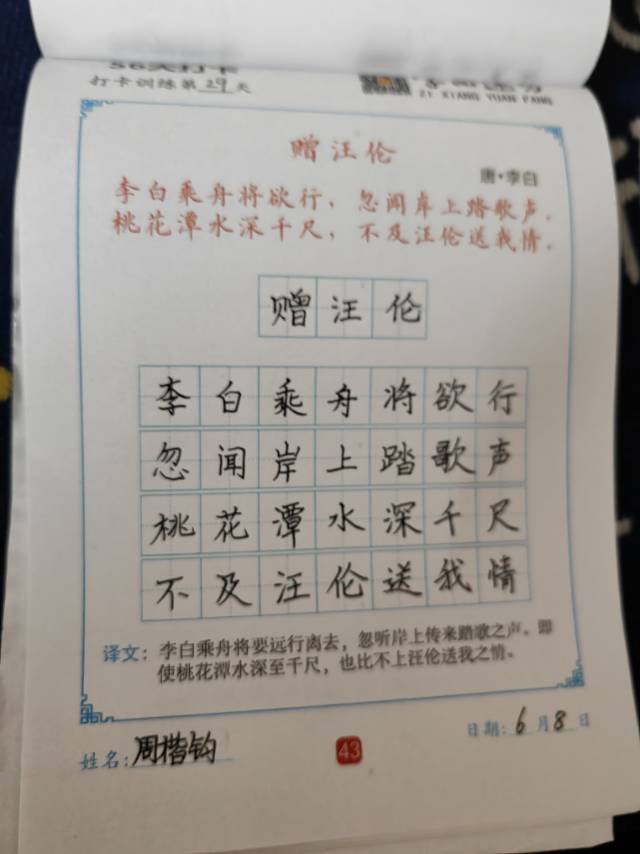 56天打卡
打卡训练第29天
ZI XIANG YUAN FANG
赠汪伦
唐·李白
李白乘舟将欲行,忽闻岸上踏歌声。
桃花潭水深千尺,不及汪伦送我情。
赠汪伦
李白乘舟将欲行
忽闻岸上踏歌声
桃花潭水深千尺
不及汪伦送我情
译文:李白乘舟将要远行离去,忽听岸上传来踏歌之声。即
使桃花潭水深至千尺,也比不上汪伦送我之情。
姓名:周楷钧
43
日期:6月8日